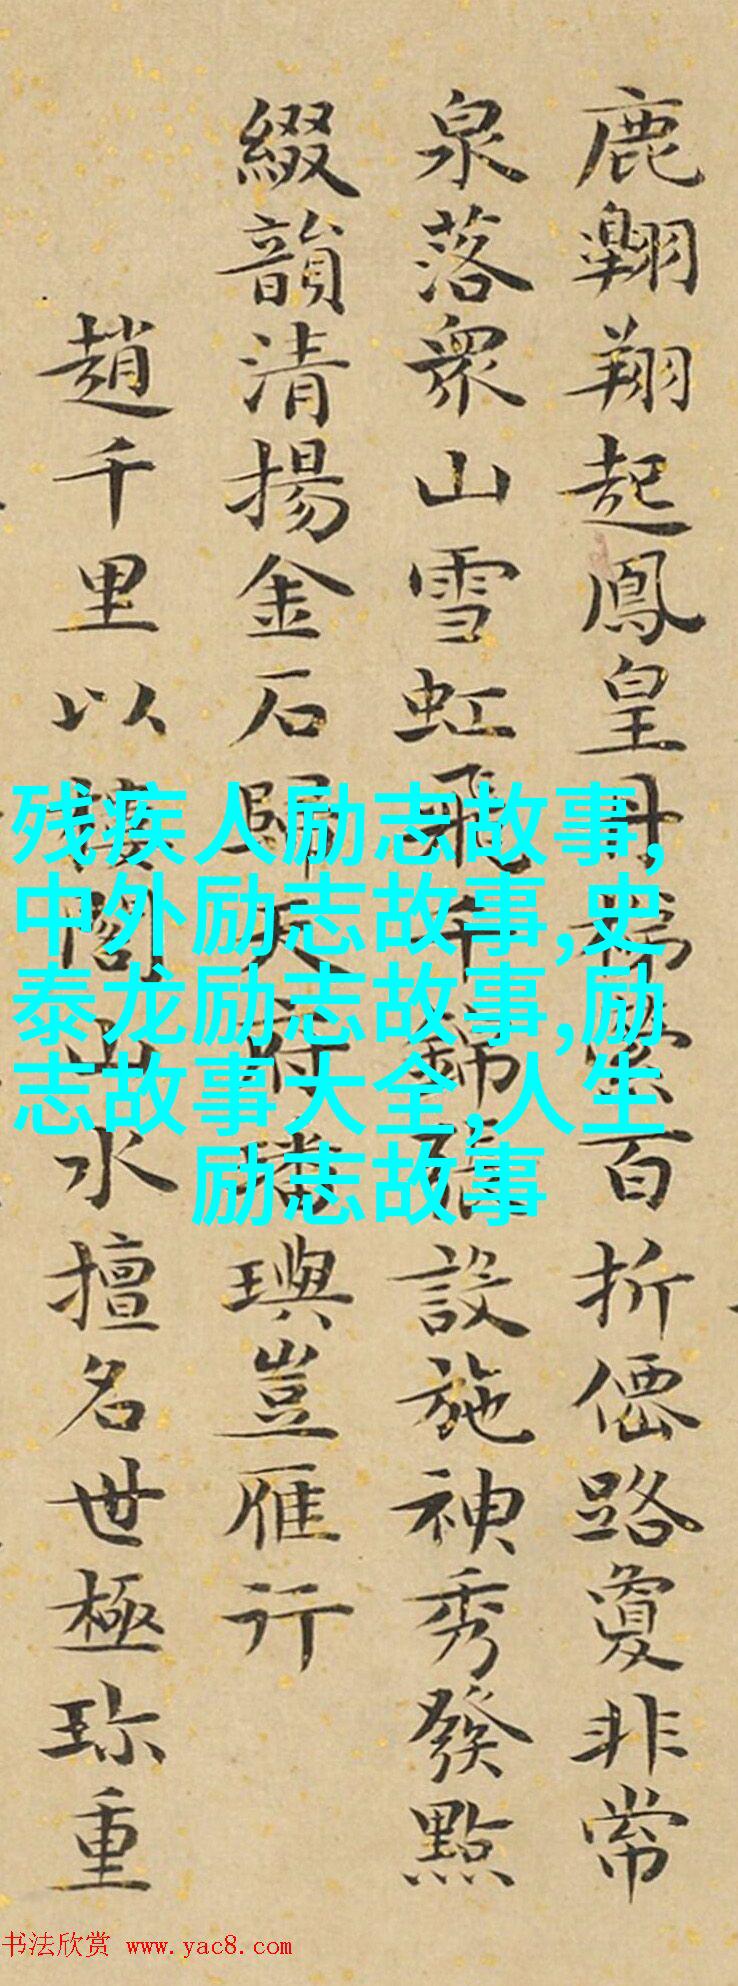 鹿翺翔起鳳皇丹梯縈百折僊路敻非常
泉落衆山雪虹飛錦張設施神秀發點
綴韻清揚金石歸天府璠璵豈雁行
趙千里以樓閣山水擅名世極珎重
残疾人励志故事,
中外励志故事,史
泰龙励志故事,励
志故事大全,人生
励志故事
书法欣赏 www.yac8.com